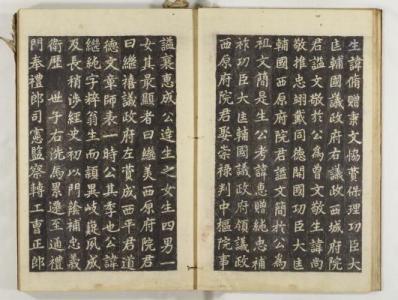 生諱侑贈秉文協賛保理功臣大
匡輔國議政府右議政西城府院
君謚文敬於公爲曾文敬生諱尚
敬推忠翊戴同德開國功臣大匡
輔國西原府院君謚文簡於公爲
祖文簡是生公考諱惠贈純忠補
祚功臣大匡輔國議政府領議政
西原府院君娶崇祿判中樞院事
謚襄惠成公達生之女生四男一
女其最顯者曰繼美西原府院君
曰繼禧議政府左賛成西平君道
德文章師表一時公其季也公諱
繼純字粹翁生而頴異岐嶷夙成
及長稍涉經史初以門蔭補忠義
衛歷 世子右洗馬累遷至通禮
門奉禮郎司憲監察轉工曹正郎